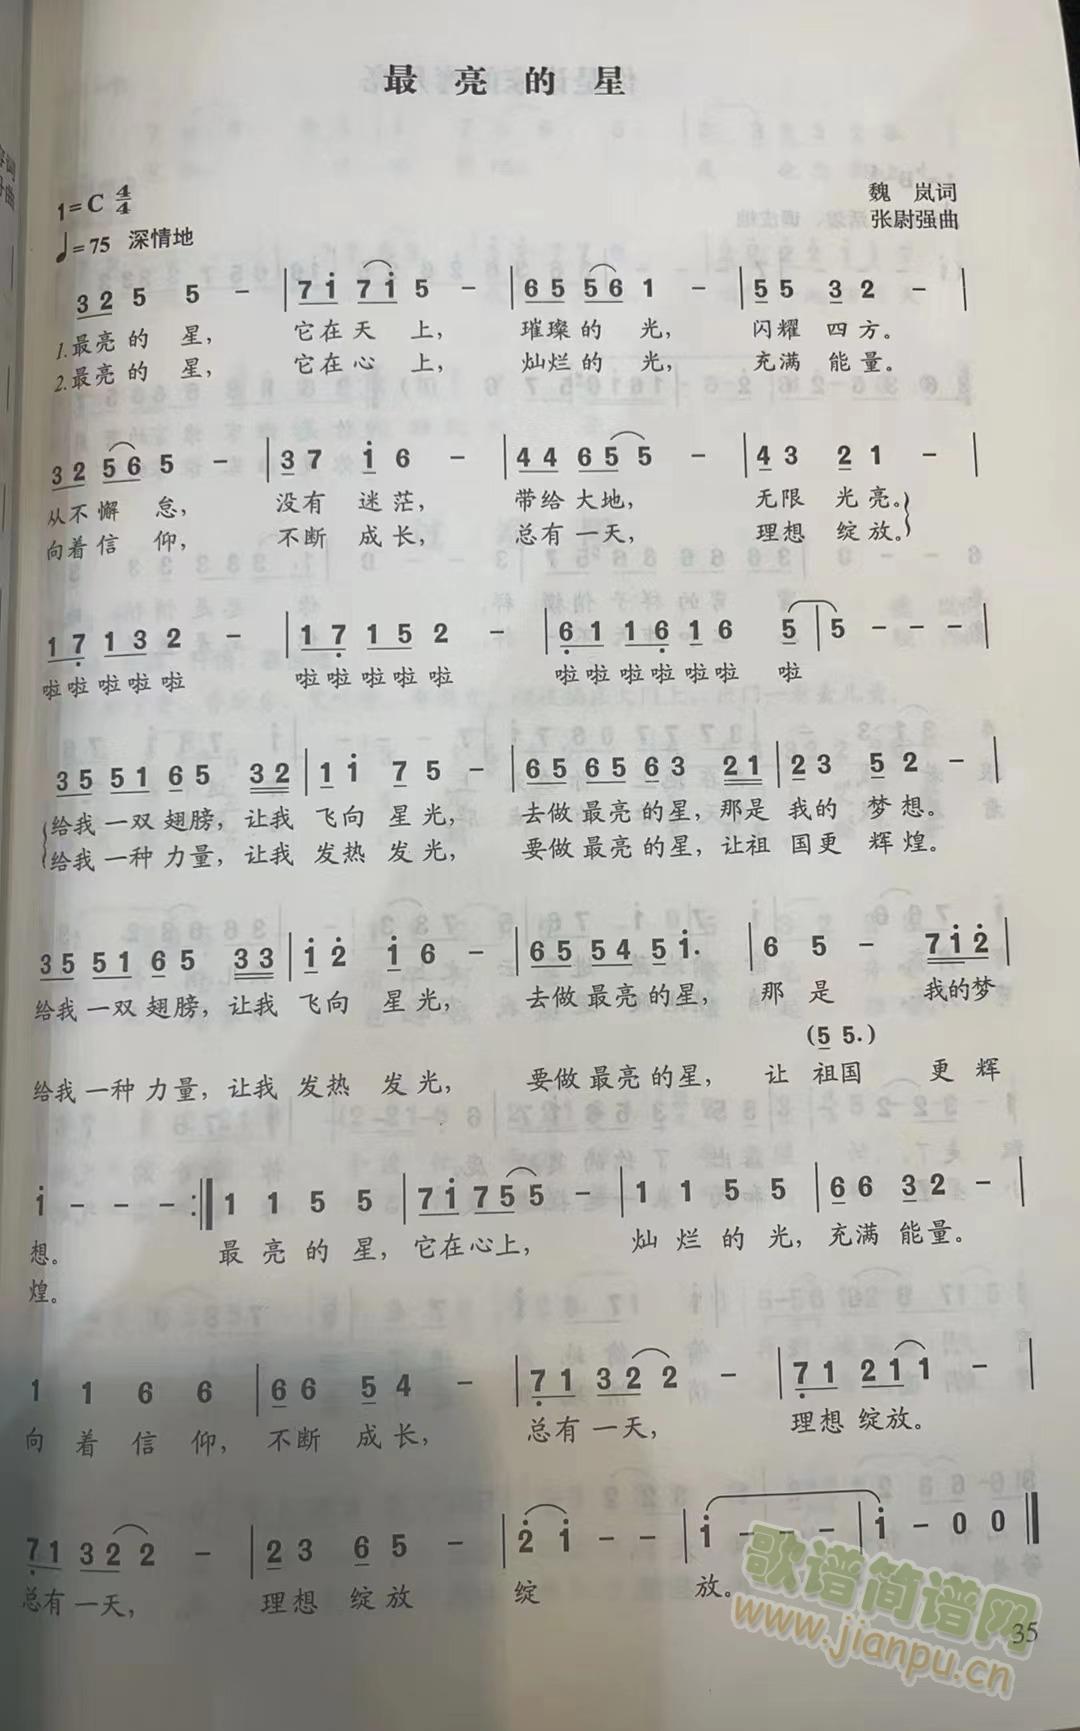 最亮的星
1=C 4/4
魏 岚词
♩=75 深情地
张尉强曲
3 2 5 5 - | 7 1 7 1 5 - | 6 5 5 6 1 - | 5 5 3 2 - |
1.最亮的 星, 它在天 上, 璀璨的 光, 闪耀 四方。
2.最亮的 星, 它在心 上, 灿烂的 光, 充满 能量。
3 2 5 6 5 - | 3 7 1 6 - | 4 4 6 5 5 - | 4 3 2 1 - |
从不懈 怠, 没有 迷茫, 带给大地, 无限 光亮。
向着信 仰, 不断 成长, 总有一天, 理想 绽放。
1 7 1 3 2 - | 1 7 1 5 2 - | 6 1 1 6 1 6 5 | 5 - - - |
啦啦啦啦啦 啦啦啦啦啦 啦啦啦啦啦啦 啦
3 5 5 1 6 5 3 2 | 1 1 7 5 - | 6 5 6 5 6 3 2 1 | 2 3 5 2 - |
给我一双翅膀, 让我 飞向 星光, 去做最亮的星, 那是 我的 梦想。
给我一种力量, 让我 发热 发光, 要做最亮的星, 让祖 国更 辉煌。
3 5 5 1 6 5 3 3 | 1 2 1 6 - | 6 5 5 4 5 1. | 6 5 - 7 1 2 |
给我一双翅膀, 让我 飞向 星光, 去做最亮的星, 那 是 我的梦
(5 5.)
给我一种力量, 让我 发热 发光, 要做最亮的星, 让 祖国 更 辉
1 - - - :‖ 1 1 5 5 | 7 1 7 5 5 - | 1 1 5 5 | 6 6 3 2 - |
想。 最 亮 的 星, 它在心上, 灿 烂 的 光, 充满 能量。
煌。
1 1 6 6 | 6 6 5 4 - | 7 1 3 2 2 - | 7 1 2 1 1 - |
向 着 信 仰, 不断 成长, 总有一天, 理想绽放。
7 1 3 2 2 - | 2 3 6 5 - | 2 1 - - | 1 - - - | 1 - 0 0 ‖
总有一天, 理想 绽放 绽 放。
歌谱简谱网
www.jianpu.cn
35